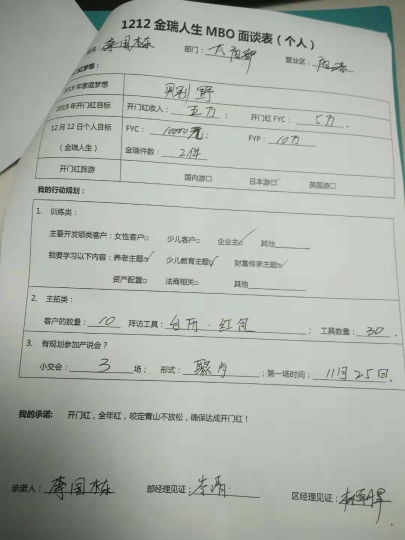 1212 金瑞人生 MBO 面谈表（个人）
姓名：李国栋 部门：太阳部 营业区：
梦想：
2019 年家庭梦想 买别野
2019 年开门红目标 开门红收入：五万 开门红 FYC：5万.
12 月 12 日个人目标（金瑞人生） FYC：10000元 FYP：10万
金瑞件数：2件
开门红旅游 国内游□ 日本游☑ 英国游□
我的行动规划：
1. 训练类：
主要开发哪类客户：女性客户□ 少儿客户□ 企业主☑ 其他
我要学习以下内容：养老主题☑ 少儿教育主题☑ 财富传承主题☑
资产配置□ 法商相关□ 其他
2. 主拓类：
客户的数量：10 拜访工具：台历·红包 ；工具数量：30.
3. 有规划参加产说会？
小交会：3 场； 形式： ；第一场时间：11月25日.
我的承诺： 开门红，全年红，咬定青山不放松，确保达成开门红！
承诺人：李国栋 部经理见证： 区经理见证：